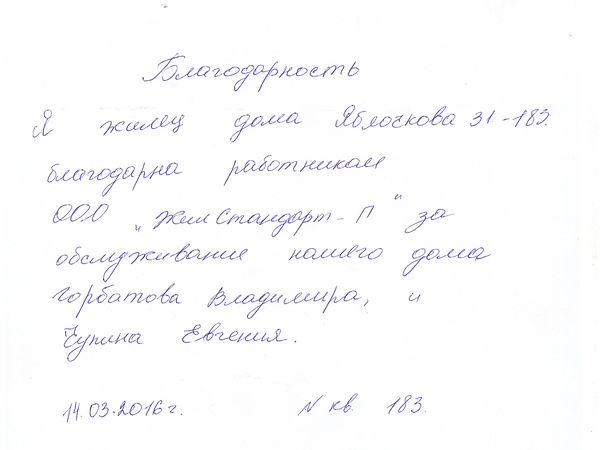 Благодарность
Я жилец дома Яблочкова 31-183.
благодарна работникам
ООО "ЖилСтандарт-П" за
обслуживание нашего дома
Горбатова Владимира, и
Чупина Евгения.
14.03.2016г. N кв. 183.